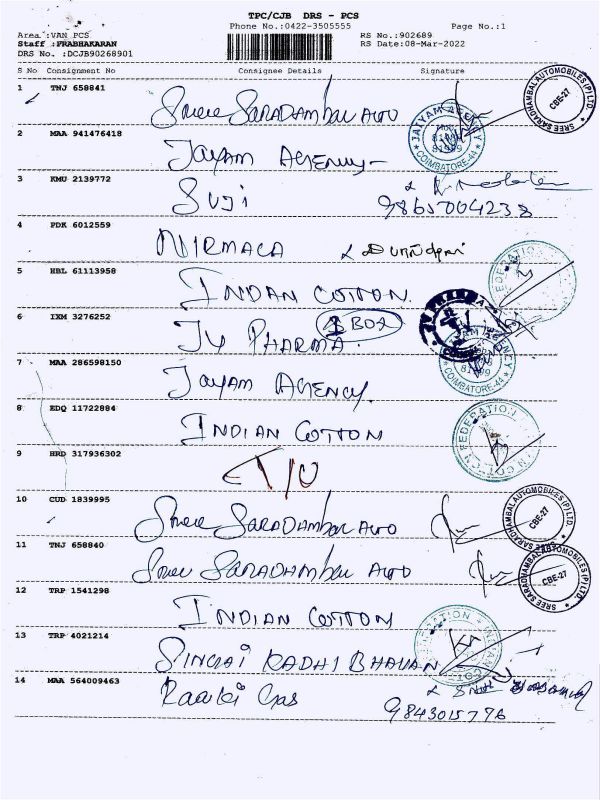 TPC/CJB DRS - PCS
Phone No.:0422-3505555
Page No.:1
Area :VAN PCS
RS No.:902689
Staff :PRABHAKARAN
RS Date:08-Mar-2022
DRS No. :DCJB90268901
S No Consignment No Consignee Details Signature
1 TNJ 658841
Sree SARADAMBAL AUTO
SREE SARADHAMBAL AUTOMOBILES (P) LTD. CBE-27
2 MAA 941476418
JAYAM AGENCY
JAYAM AGENCY COIMBATORE-44
3 KMU 2139772
SUJI
9865004238
4 PDK 6012559
NIRMALA
5 HBL 61113958
INDIAN COTTON
FEDERATION
6 IXM 3276252
1 BOX
JV PHARMA
7 MAA 286598150
JAYAM AGENCY
COIMBATORE-44
8 EDQ 11722884
INDIAN COTTON
FEDERATION
9 HRD 317936302
10 CUD 1839995
Sree SARADAMBAL AUTO
SREE SARADHAMBAL AUTOMOBILES (P) LTD. CBE-27
11 TNJ 658840
Sree SARADHAMBAL AUTO
SREE SARADHAMBAL AUTOMOBILES (P) LTD. CBE-27
12 TRP 1541298
INDIAN COTTON
13 TRP 4021214
SINGAI KADHI BHAVAN
14 MAA 564009463
Raaki Gas
9843015776